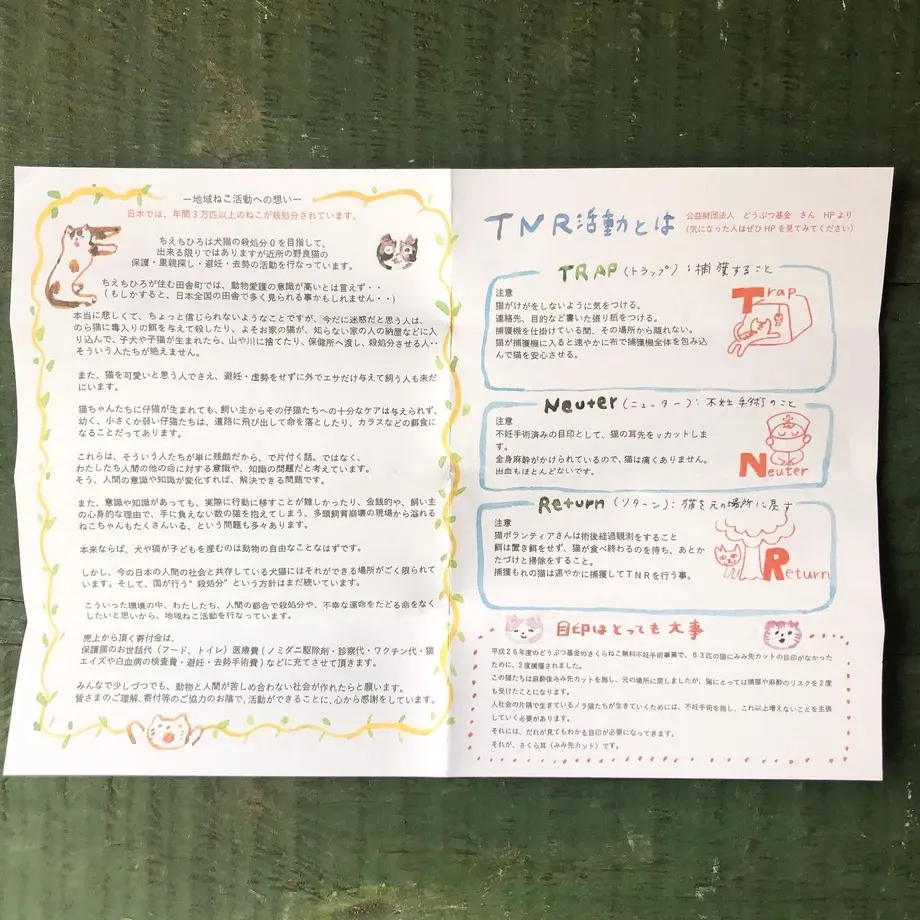 ―地域ねこ活動への想い―
日本では、年間3万匹以上のねこが殺処分されています。
ちえちひろは犬猫の殺処分0を目指して、
出来る限りではありますが近所の野良猫の
保護・里親探し・避妊・去勢の活動を行なっています。
ちえちひろが住む田舎町では、動物愛護の意識が高いとは言えず・・
(もしかすると、日本全国の田舎で多く見られる事かもしれません・・)
本当に悲しくて、ちょっと信じられないようなことですが、今だに迷惑だと思う人は、
のら猫に毒入りの餌を与えて殺したり、よそお家の猫が、知らない家の人の納屋などに入
り込んで、子犬や子猫が生まれたら、山や川に捨てたり、保健所へ渡し、殺処分させる人・・
そういう人たちが絶えません。
また、猫を可愛いと思う人でさえ、避妊・虚勢をせずに外でエサだけ与えて飼う人も未だ
にいます。
猫ちゃんたちに仔猫が生まれても、飼い主からその仔猫たちへの十分なケアは与えられず、
幼く、小さくか弱い仔猫たちは、道路に飛び出して命を落としたり、カラスなどの餌食に
なることだってあります。
これらは、そういう人たちが単に残酷だから、で片付く話。ではなく、
わたしたち人間の他の命に対する意識や、知識の問題だと考えています。
そう、人間の意識や知識が変化すれば、解決できる問題です。
また、意識や知識があっても、実際に行動に移すことが難しかったり、金銭的や、飼い主
の心身的な理由で、手に負えない数の猫を抱えてしまう、多頭飼育崩壊の現場から溢れる
ねこちゃんもたくさんいる、という問題も多々あります。
本来ならば、犬や猫が子どもを産むのは動物の自由なことなはずです。
しかし、今の日本の人間の社会と共存している犬猫にはそれができる場所がごく限られて
います。そして、国が行う"殺処分"という方針はまだ続いています。
こういった環境の中、わたしたち、人間の都合で殺処分や、不幸な運命をたどる命をなく
したいと思いから、地域ねこ活動を行なっています。
売上から頂く寄付金は、
保護猫のお世話代(フード、トイレ)医療費(ノミダニ駆除剤・診察代・ワクチン代・猫
エイズや白血病の検査費・避妊・去勢手術費)などに充てさせて頂きます。
みんなで少しづつでも、動物と人間が苦しめ合わない社会が作れたらと願います。
皆さまのご理解、寄付等のご協力のお陰で、活動ができることに、心から感謝をしています。
TNR活動とは
公益財団法人 どうぶつ基金 さん HPより
(気になった人はぜひHPを見てみてください)
TRAP(トラップ):捕獲すること
注意
猫がけがをしないように気をつける。
連絡先、目的など書いた張り紙をつける。
捕獲機を仕掛けている間、その場所から離れない。
猫が捕獲機に入ると速やかに布で捕獲機全体を包み込
んで猫を安心させる。
Trap
Neuter(ニューター):不妊手術のこと
注意
不妊手術済みの目印として、猫の耳先をvカットしま
す。
全身麻酔がかけられているので、猫は痛くありません。
出血もほとんどないです。
Neuter
Return(リターン):猫を元の場所に戻す
注意
猫ボランティアさんは術後経過観測をすること
餌は置き餌をせず、猫が食べ終わるのを待ち、あとか
たづけと掃除をすること。
捕獲もれの猫は速やかに捕獲してTNRを行う事。
Return
目印はとっても大事
平成26年度のどうぶつ基金のさくらねこ無料不妊手術事業で、63匹の猫にみみ先カットの目印がなかっ
たために、2度捕獲されました。
この猫たちは麻酔後みみ先カットを施し、元の場所に戻しましたが、猫にとっては捕獲や麻酔のリスクを2度
も受けたことになります。
人社会の片隅で生きているノラ猫たちが生きていくためには、不妊手術を施し、これ以上増えないことを主張
していく必要があります。
それには、だれが見てもわかる目印が必要になってきます。
それが、さくら耳(みみ先カット)です。